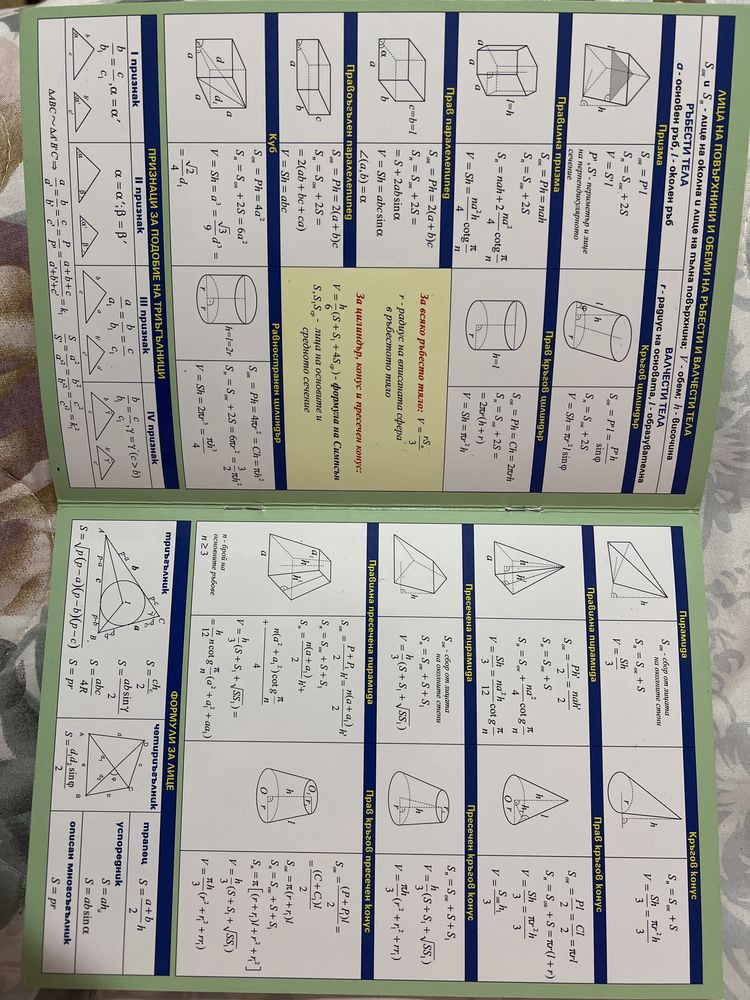 ЛИЦА НА ПОВЪРХНИНИ И ОБЕМИ НА РЪБЕСТИ И ВАЛЧЕСТИ ТЕЛА
S_ок и S_n - лице на околна и лице на пълна повърхнина; V - обем; h - височина
РЪБЕСТИ ТЕЛА
a - основен ръб, l - околен ръб
ВАЛЧЕСТИ ТЕЛА
r - радиус на основата, l - образувателна
Призма
l
h
S_ок = P'l
S_n = S_ок + 2S
V = S'l
P', S' - периметър и лице
на перпендикулярното
сечение
Кръгов цилиндър
l
φ
h
r
S_ок = P'l = P'h / sinφ
S_n = S_ок + 2S
V = Sh = πr²l sinφ
Правилна призма
l=h
a
S_ок = Ph = nah
S_n = S_ок + 2S
S_n = nah + 2 na²/4 cotg π/n
V = Sh = na²h/4 cotg π/n
Прав кръгов цилиндър
h=l
r
S_ок = Ph = Ch = 2πrh
S_n = S_ок + 2S =
= 2πr(h + r)
V = Sh = πr²h
Прав паралелепипед
α
b
a
c=b=l
S_ок = Ph = 2(a + b)c
S_n = S_ок + 2S =
= S + 2ab sinα
V = Sh = abc sinα
∠(a,b) = α
За всяко ръбесто тяло: V = rS_n / 3
r - радиус на вписаната сфера
в ръбестото тяло
За цилиндър, конус и пресечен конус:
V = h/6 (S + S₁ + 4S_ср) - формула на Симпсън
S, S₁, S_ср - лица на основите и
средното сечение
Правоъгълен паралелепипед
a
b
c
S_ок = Ph = 2(a + b)c
S_n = S_ок + 2S =
= 2(ab + bc + ca)
V = Sh = abc
Куб
d
d₁
a
a
a
S_ок = Ph = 4a²
S_n = S_ок + 2S = 6a²
V = Sh = a³ = √3/9 d³ =
= √2/4 d₁
Равностранен цилиндър
r
r
h=l=2r
S_ок = Ph = 4πr² = Ch = πh²
S_n = S_ок + 2S = 6πr² = 3/2 πh²
V = Sh = 2πr³ = πh³/4
ПРИЗНАЦИ ЗА ПОДОБИЕ НА ТРИЪГЪЛНИЦИ
I признак
b/b₁ = c/c₁, α = α'
II признак
α = α'; β = β'
III признак
a/a₁ = b/b₁ = c/c₁
IV признак
b/b₁ = c/c₁, γ = γ' (c > b)
ΔABC ~ ΔA'B'C' ⇒ a/a' = b/b' = c/c' = P/P' = a+b+c / a'+b'+c' = k; S/S' = a²/a'² = b²/b'² = c²/c'² = k²
Пирамида
h
S_ок - сбор от лицата
на околните стени
S_n = S_ок + S
V = Sh/3
Кръгов конус
h
r
S_n = S_ок + S
V = Sh/3 = πr²h/3
Правилна пирамида
h
h'
a
S_ок = Ph'/2 = nah'/2
S_n = S_ок + S
S_n = S_ок + na²/4 cotg π/n
V = Sh/3 = na²h/12 cotg π/n
Прав кръгов конус
h
O r
S_ок = Pl/2 = Cl/2 = πrl
S_n = S_ок + S = πr(l + r)
V = Sh/3 = πr²h/3
V = S_ок h₁/3
Пресечена пирамида
h
S_ок - сбор от лицата
на околните стени
S_n = S_ок + S + S₁
V = h/3 (S + S₁ + √SS₁)
Пресечен конус
h
r₁
r
S_n = S_ок + S + S₁
V = h/3 (S + S₁ + √SS₁)
V = πh/3 (r² + r₁² + rr₁)
Правилна пресечена пирамида
a₁
h
h'
a
n - брой на
основните ръбове
n ≥ 3
S_ок = P + P₁/2 h' = n(a + a₁)/2 h'
S_n = S_ок + S + S₁
S_n = n(a + a₁)/2 h' +
+ n(a² + a₁²)/4 cotg π/n
V = h/3 (S + S₁ + √SS₁) =
= h/12 n cotg π/n (a² + a₁² + aa₁)
Прав кръгов пресечен конус
O₁ r₁
h
l
O r
S_ок = (P + P₁)l/2 =
= (C + C₁)l/2
S_ок = π(r + r₁)l
S_n = S_ок + S + S₁
S_n = π[(r + r₁)l + r² + r₁²]
V = h/3 (S + S₁ + √SS₁)
V = πh/3 (r² + r₁² + rr₁)
ФОРМУЛИ ЗА ЛИЦЕ
триъгълник
S = √p(p − a)(p − b)(p − c)
S = ch_c/2
S = ab sinγ/2
S = abc/4R
S = pr
четириъгълник
S = d₁d₂ sinφ/2
трапец
S = a + b/2 h
успоредник
S = ah_a
S = ab sinα
описан многоъгълник
S = pr